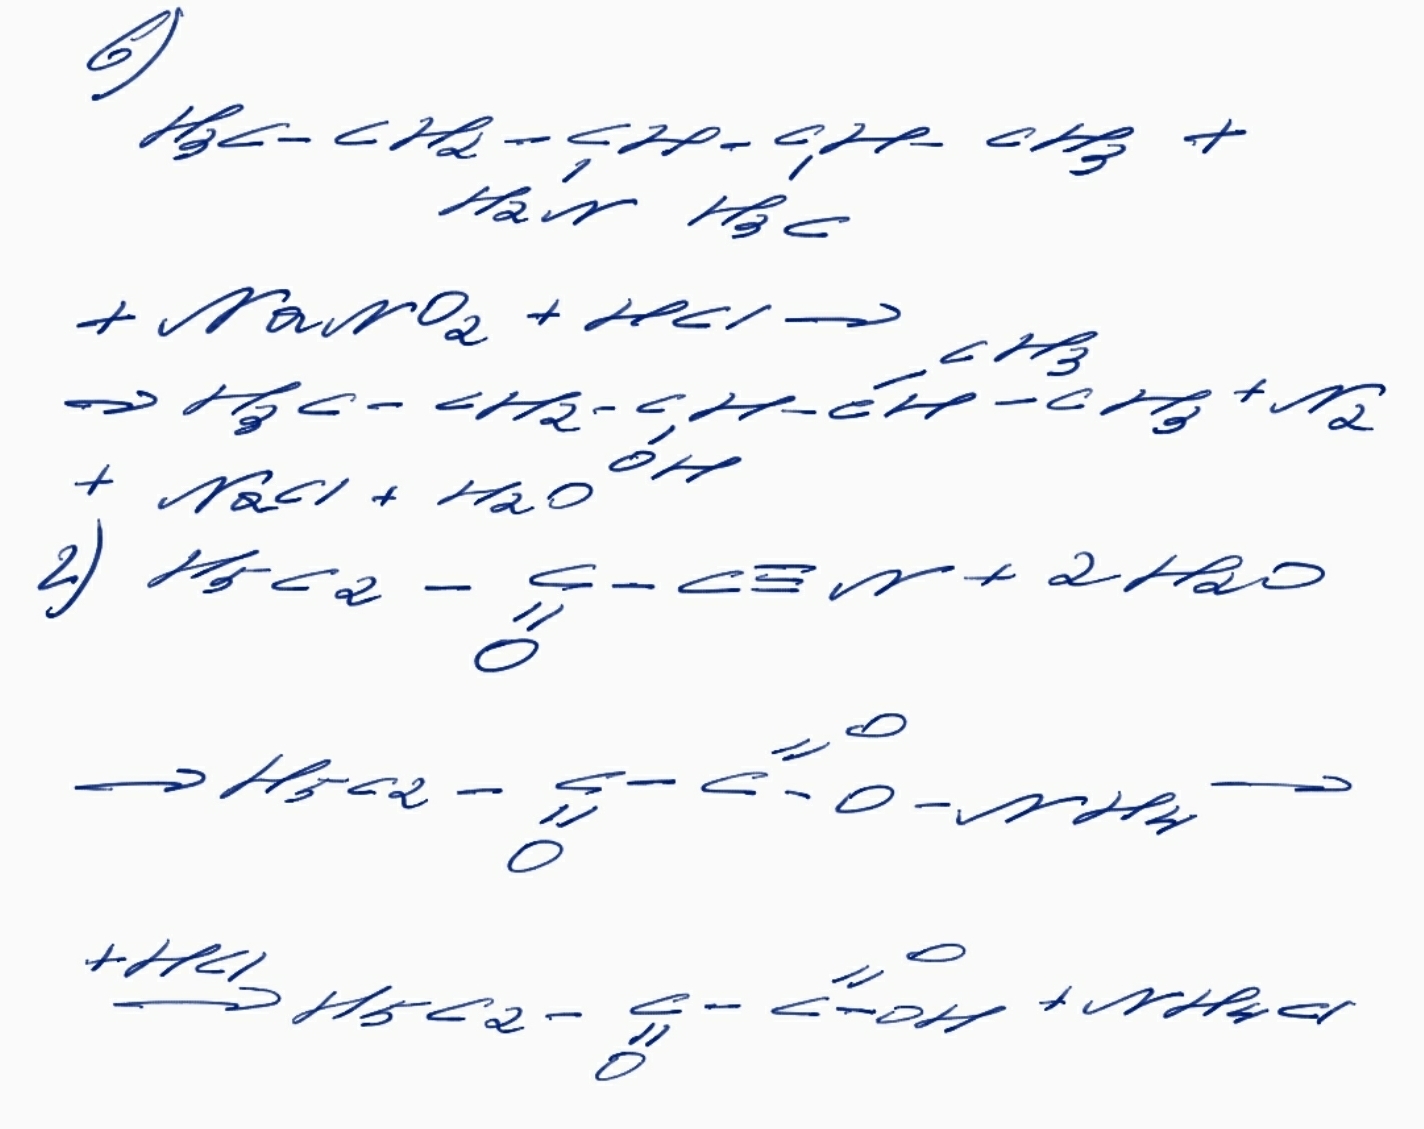 б)
H3C - CH2 - CH - CH - CH3 +
H2N H3C
+ NaNO2 + HCl →
CH3
→ H3C - CH2 - CH - CH - CH3 + N2
OH
+ NaCl + H2O
2) H5C2 - C - C≡N + 2H2O
O
O
→ H5C2 - C - C - O - NH4 →
O
+HCl
O
→ H5C2 - C - C - OH + NH4Cl
O